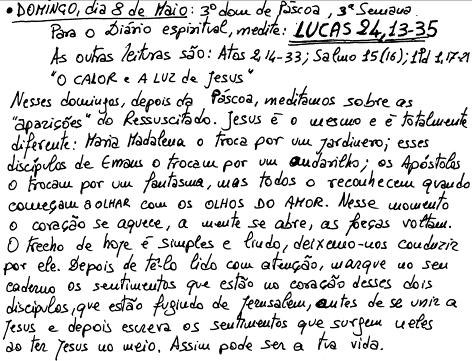 • DOMINGO, dia 8 de Maio: 3º dom de Páscoa, 3ª Semana
Para o Diário espiritual, medite: LUCAS 24,13-35
As outras leituras são: Atos 2,14-33; Salmo 15(16); 1Pd 1,17-21
"O CALOR e A LUZ de Jesus"
Nesses domingos, depois da Páscoa, meditamos sobre as
"aparições" do Ressuscitado. Jesus é o mesmo e é totalmente
diferente: Maria Madalena o troca por um jardineiro; esses
discípulos de Emaus o trocam por um andarilho; os Apóstolos
o trocam por um fantasma, mas todos o reconhecem quando
começam a OLHAR com os OLHOS DO AMOR. Nesse momento
o coração se aquece, a mente se abre, as forças voltam.
O trecho de hoje é simples e lindo, deixemo-nos conduzir
por ele. Depois de tê-lo lido com atenção, marque no seu
caderno os sentimentos que estão no coração desses dois
discípulos, que estão fugindo de Jerusalém, antes de se unir a
Jesus e depois escreva os sentimentos que surgem neles
ao ter Jesus no meio. Assim pode ser a tua vida.